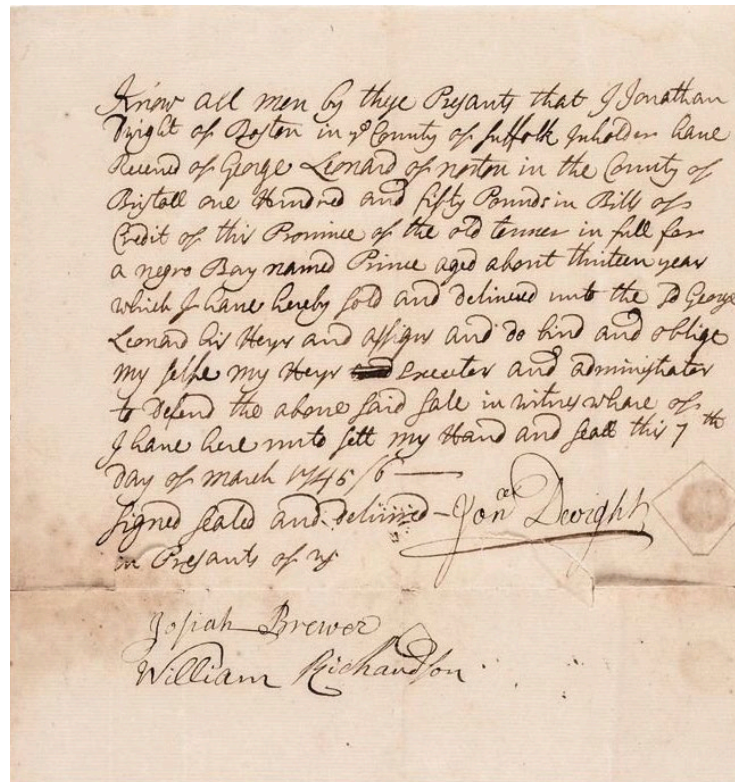 Know all men by these Presants that I Jonathan
Dwight of Boston in ye County of Suffolk Inholder have
Receved of George Leonard of norton in the County of
Bristoll one Hundred and fifty Pounds in Bills of
Credit of this Province of the old tenner in full for
a negro Boy named Prince aged about thirteen year
which I have hereby sold and delivered unto the sd George
Leonard his Heyrs and assigns and do bind and oblige
my selfe my Heyrs Executer and administrator
to Defend the above said sale in witness whare of
I have here unto sett my Hand and seall this 7th
day of march 1745/6
signed sealed and delivired Jonª Dwight
in Presants of us
Josiah Brewer
William Richardson